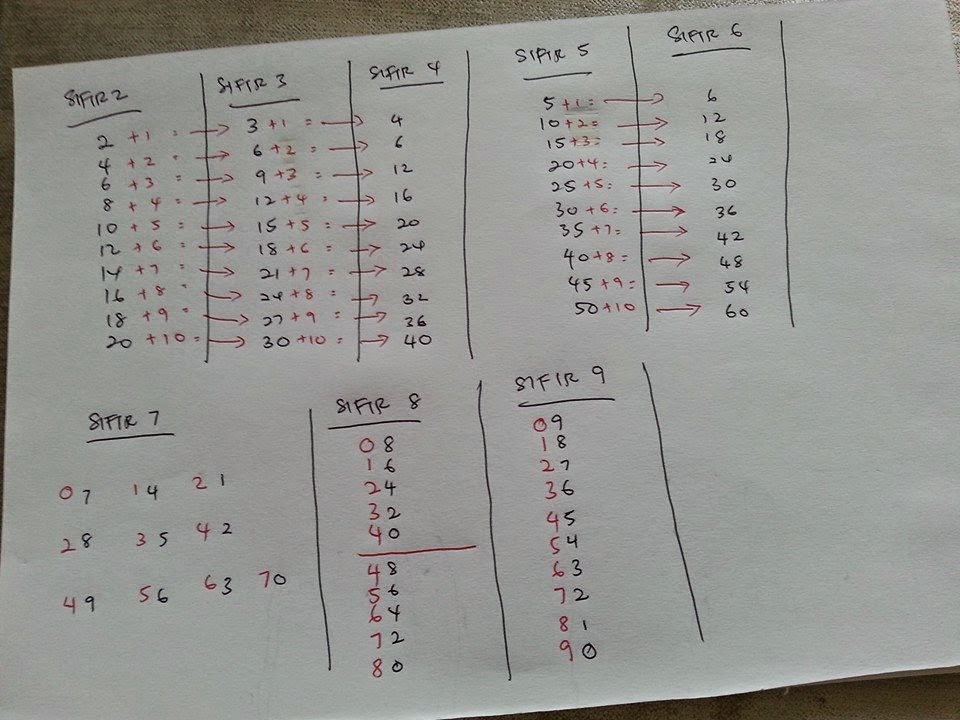 SIFIR 2 SIFIR 3 SIFIR 4 SIFIR 5 SIFIR 6
2 +1 = → 3 +1 = → 4 5 +1 = → 6
4 +2 = → 6 +2 = → 6 10 +2= → 12
6 +3 = → 9 +3 = → 12 15 +3= → 18
8 +4 = → 12 +4 = → 16 20 +4= → 24
10 +5 = → 15 +5 = → 20 25 +5= → 30
12 +6 = → 18 +6 = → 24 30 +6= → 36
14 +7 = → 21 +7 = → 28 35 +7= → 42
16 +8 = → 24 +8 = → 32 40 +8= → 48
18 +9 = → 27 +9 = → 36 45 +9= → 54
20 +10 = → 30 +10 = → 40 50 +10 → 60
SIFIR 7
07 14 21
28 35 42
49 56 63 70
SIFIR 8
08
16
24
32
40
48
56
64
72
80
SIFIR 9
09
18
27
36
45
54
63
72
81
90